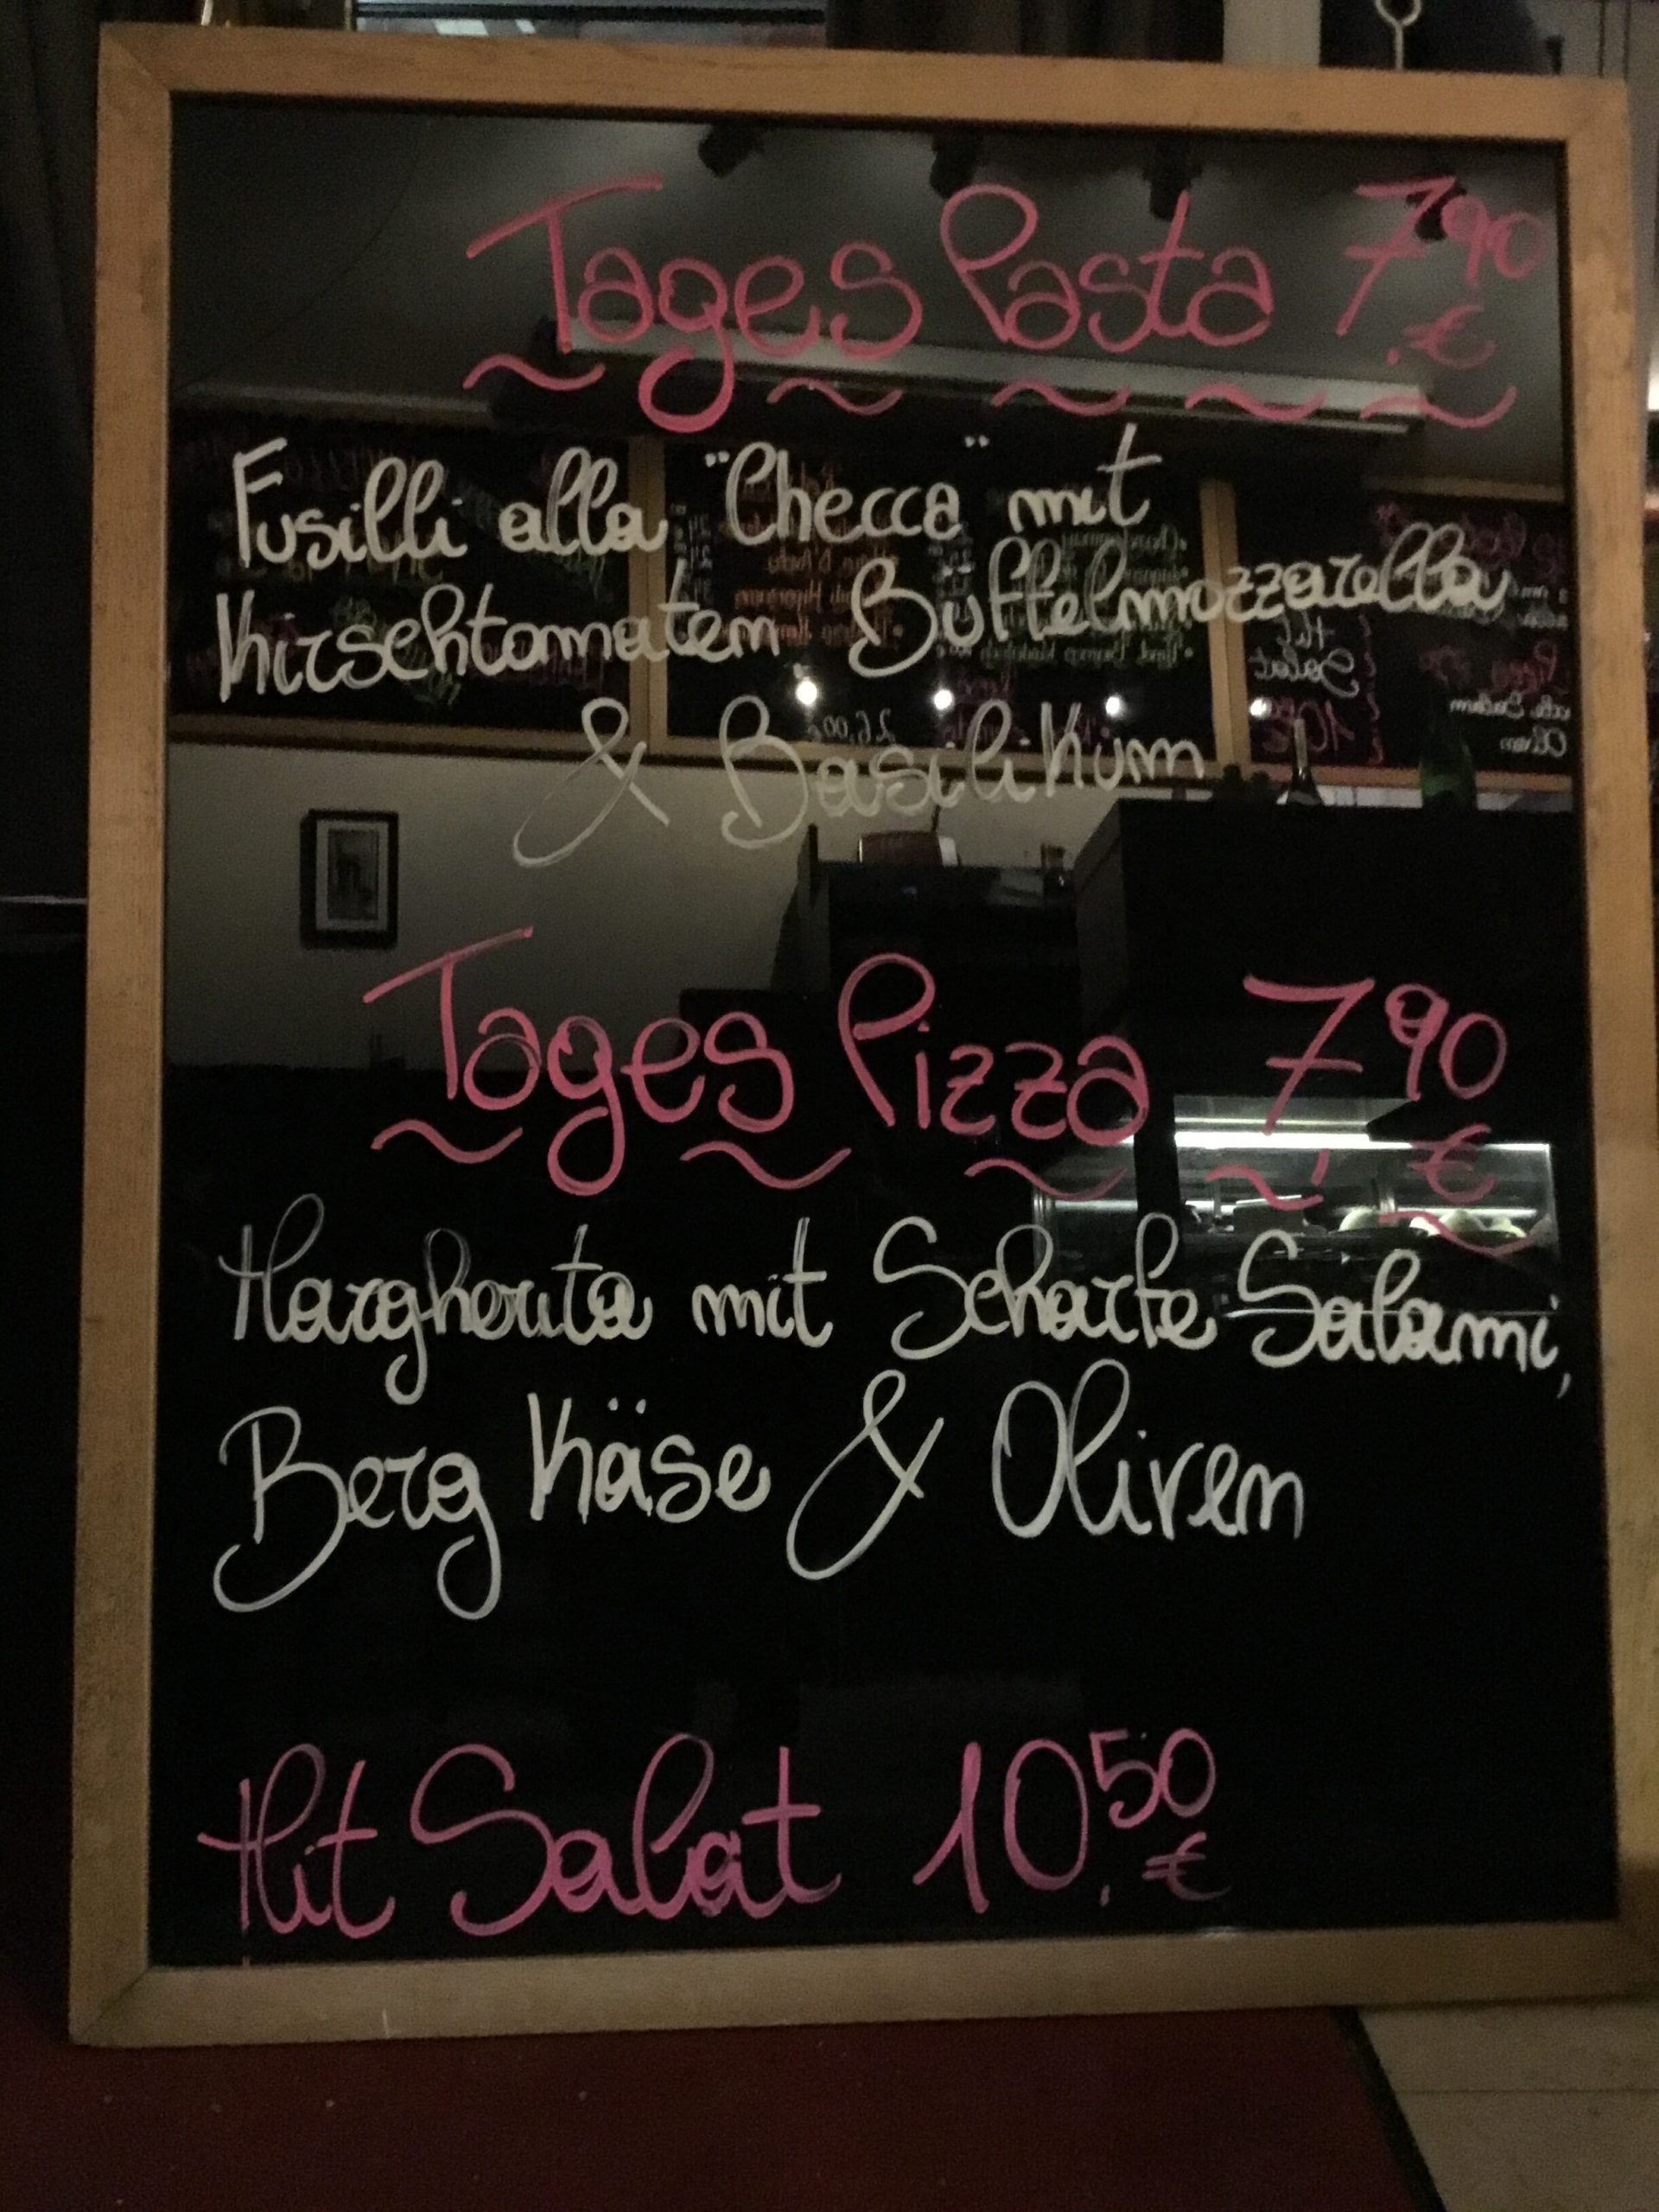 Tages Pasta 7,90 €
Fusilli alla "Checca" mit
Kirschtomaten Büffelmozzarella
& Basilikum
Tages Pizza 7,90 €
Margherita mit Scharfe Salami,
Berg Käse & Oliven
Hit Salat 10,50 €
Hit
Salat
10
26,00 €
Oliven